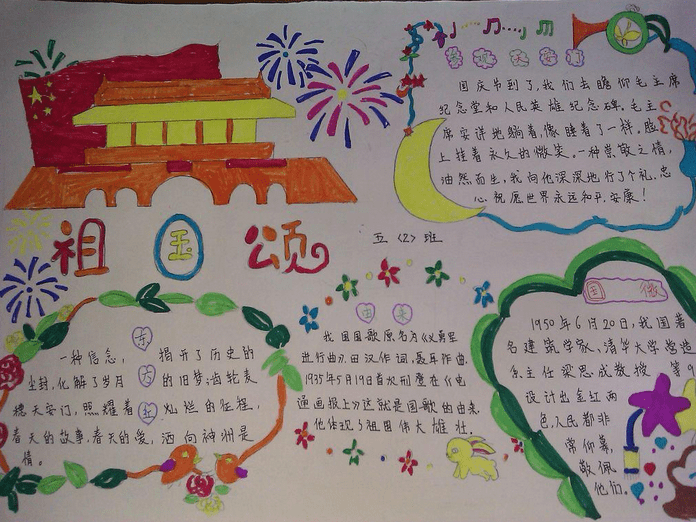 祖国颂
参观天安门
国庆节到了,我们去瞻仰毛主席
纪念堂和人民英雄纪念碑。毛主
席安详地躺着,像睡着了一样。脸
上挂着永久的微笑。一种崇敬之情,
油然而生,我向他深深地行了个礼,忠
心祝愿世界永远和平、安康!
五〈2〉班
东方红
一种信念, 揭开了历史的
尘封,化解了岁月 的旧梦;齿轮麦
穗天安门,照耀着 灿烂的征程,
春天的故事,春天的爱,洒向神州是
情。
国歌
我国国歌原名为《义勇军
进行曲》,田汉作词,聂耳作曲,
1935年5月19日首次刊登在《电
通画报上》这就是国歌的由来,
他体现了祖国伟大雄壮。
国徽
1950年6月20日,我国著
名建筑学家、清华大学营造
系主任梁思成教授 第9
设计出金红两
色,人民都非
常仰慕,
敬佩
他们。